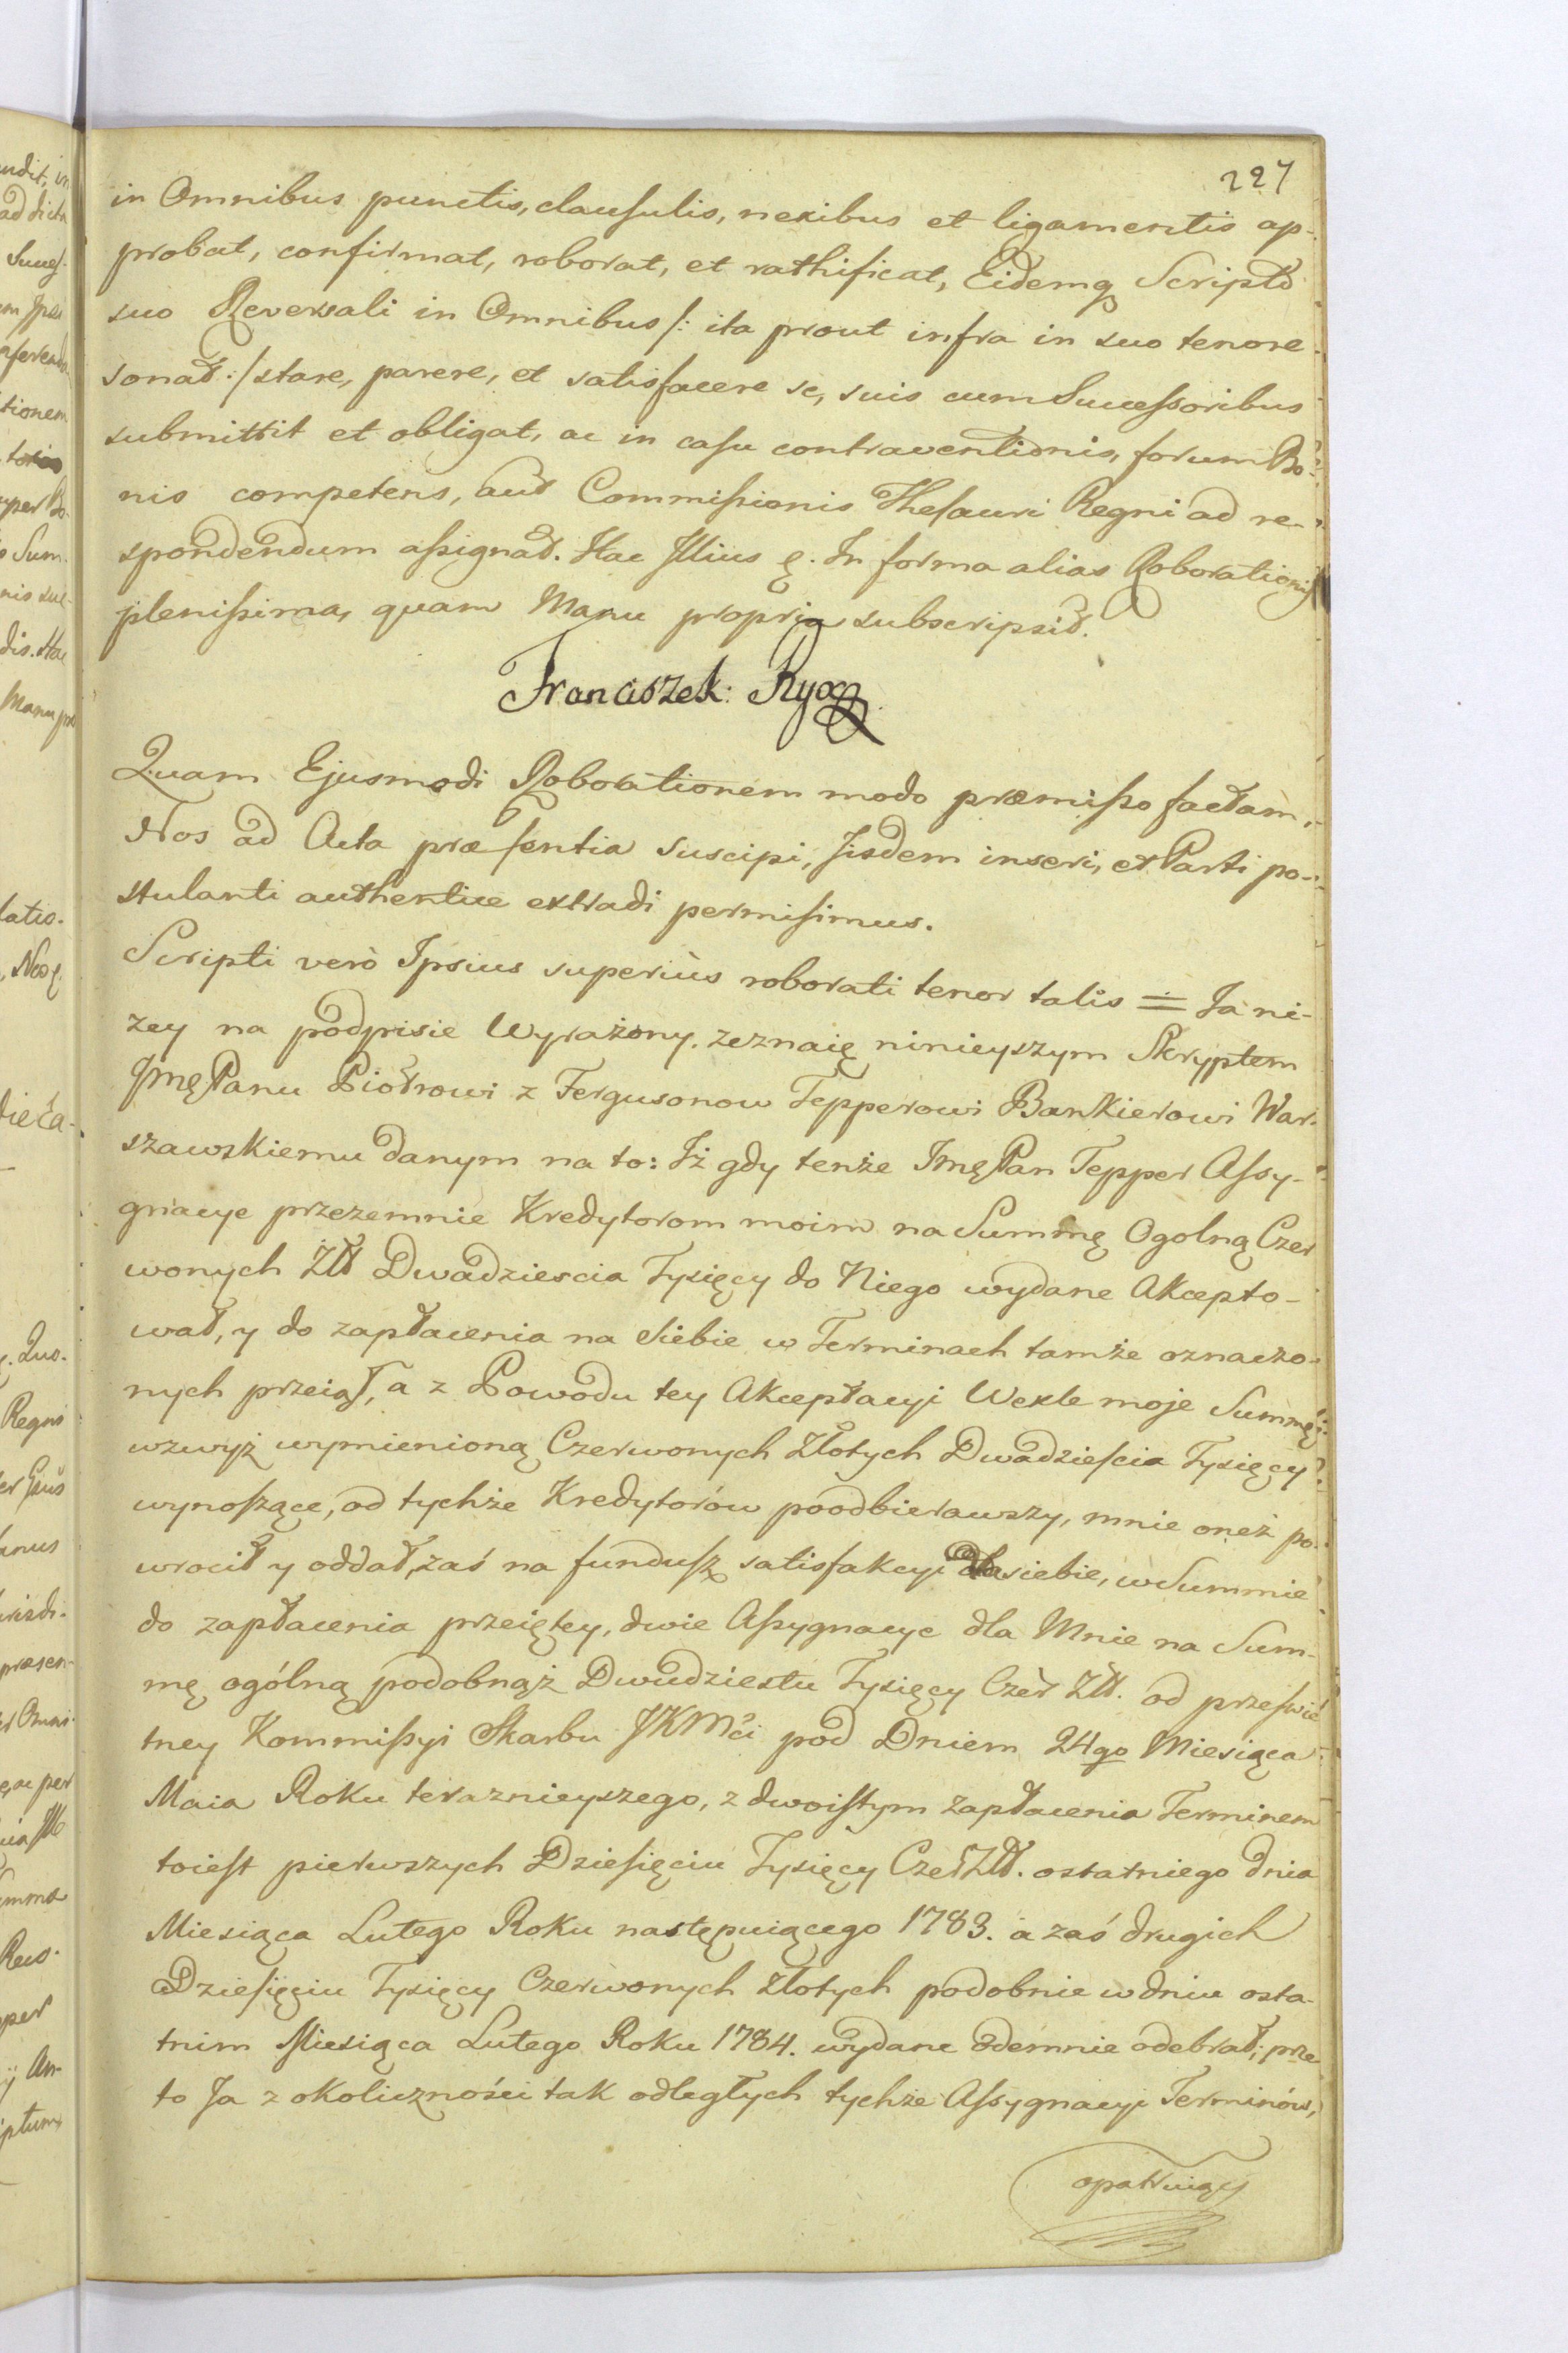 227
in Omnibus punctis, clausulis, nexibus et ligamentis ap-
probat, confirmat, roborat, et rathificat, Eidemq Scripto
suo Reversali in Omnibus /: ita prout infra in suo tenore
sonat :/ stare, parere, et satisfacere se, suis cum Sucessoribus
submittit et obligat, ac in casu contraventionis, forum Bo-
nis competens, aut Commissionis Thesauri Regni ad re-
spondendum assignat. Hac Illius ę. In forma alias Roborationis
plenissima, quam Manu propria subscripsit.
Franciszek: Ryx
Quam Ejusmodi Roborationem modo præmisso factam,
Nos ad Acta præsentia suscipi, Iisdem inseri, et Parti po-
stulanti authentice extradi permisimus.
Scripti verò Ipsius superiùs roborati tenor talis = Ja ni-
zey na podpisie Wyrażony. zeznaię ninieyszym Skryptem
Jmę Panu Piotrowi z Fergusonow Tepperowi Bankierowi War-
szawskiemu danym na to: Iż gdy tenże Jmę Pan Tepper Assy-
gnacye przezemnie Kredytorom moim na Summę Ogolną Czer
wonych Złł Dwadziescia Tysięcy do Niego wydane Akcepto-
wał, y do zapłacenia na siebie w Terminach tamże oznaczo-
nych przeiął, a z Powodu tey Akceptacyi Wexle moje Summę
wzwyż wymienioną Czerwonych Złotych Dwadzieścia Tysięcy
wynoszące, od tychże Kredytorów poodbierawszy, mnie oneż po-
wrocił y oddał, zaś na fundusz satisfakcyi dla siebie, w Summie
do zapłacenia przeiętey, dwie Assygnacye dla Mnie na Sum-
mę ogólną podobnąż Dwudziestu Tysięcy Czer Złł. od przeswie
tney Kommissyi Skarbu JKMci pod Dniem 24go Miesiąca
Maia Roku terazniejszego, z dwoistym zapłacenia Terminem
toiest pierwszych Dziesięciu Tysięcy Czer Złł. ostatniego dnia
Miesiąca Lutego Roku następuiącego 1783. a zaś drugich
Dziesięciu Tysięcy Czerwonych złotych podobnie w dniu osta-
tnim Miesiąca Lutego Roku 1784. wydane odemnie odebrał; prze
to Ja z okoliczności tak odległych tychże Assygnacyi Terminów,
opatruiący